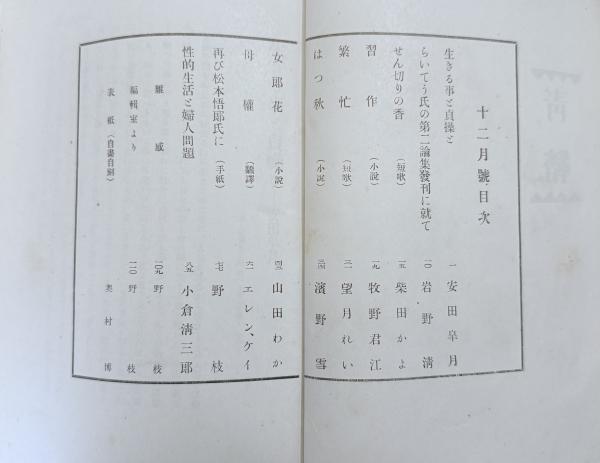 十二月號目次
生きる事と貞操と 一 安田皐月
らいてう氏の第二論集發刊に就て 一〇 岩野淸
せん切りの香 (短歌) 一五 柴田かよ
習作 (小說) 一九 牧野君江
繁忙 (短歌) 三一 望月れい
はつ秋 (小說) 濱野雪
女郎花 (小說) 山田わか
母權 (飜譯) 六一 エレン、ケイ
再び松本悟郎氏に (手紙) 七七 野枝
性的生活と婦人問題 八五 小倉淸三郎
雜感 一〇九 野枝
編輯室より 一一〇 野枝
表紙 (自畫自刻) 奧村博
靑鞜